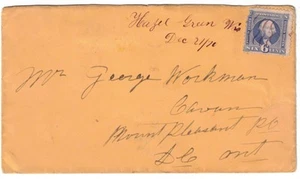 Hazel Green Wis
Dec 21/70
SIX 6 CENTS
Mr George Workman
Cavan
Mount Pleasant P.O
Ont